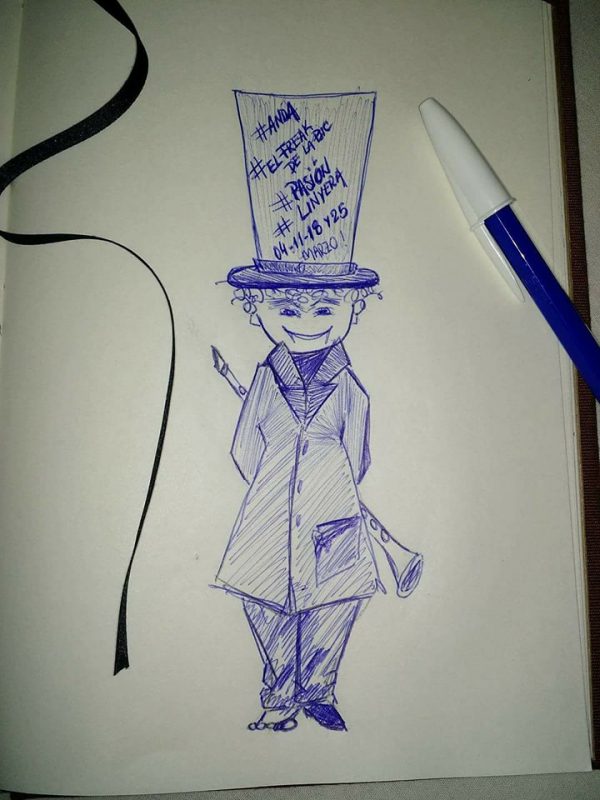 #ANDA
#ELFREAK
DE LA BIC
#PASIÓN
#LINYERA
04-11-18 Y 25
MARZO!